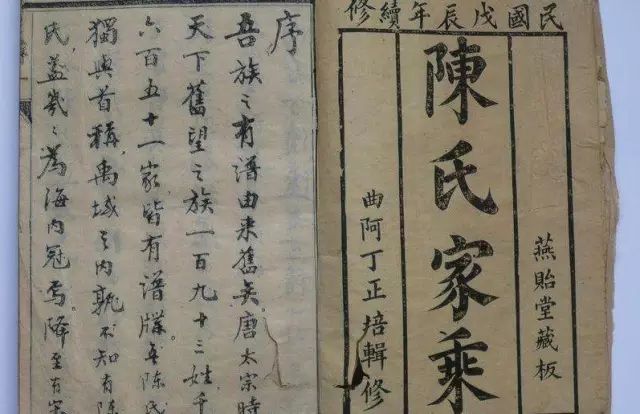 民國戊辰年續修
燕貽堂藏板
陳氏家乘
曲阿丁正培輯修
序
吾族之有譜由来舊矣唐太宗時
天下舊望之族一百九十三姓千
六百五十一家皆有譜牒吾陳氏
獨與首稱禹域之内孰不知有陳
氏蓋㡬〻為海内冠焉降至有宋